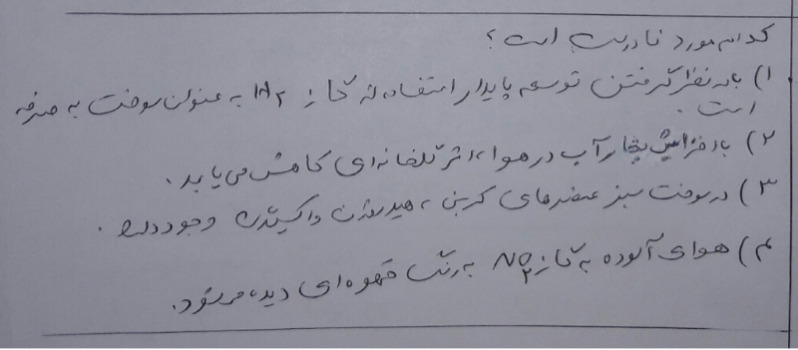 کدام مورد نادرست است؟
۱) با در نظر گرفتن توسعه پایدار استفاده از گاز H₂ به عنوان سوخت به صرفه
است.
۲) با افزایش بخار آب در هوا، اثر گلخانه‌ای کاهش می‌یابد.
۳) در سوخت سبز عنصرهای کربن، هیدروژن و اکسیژن وجود دارد.
۴) هوای آلوده به گاز NO₂ به رنگ قهوه‌ای دیده می‌شود.